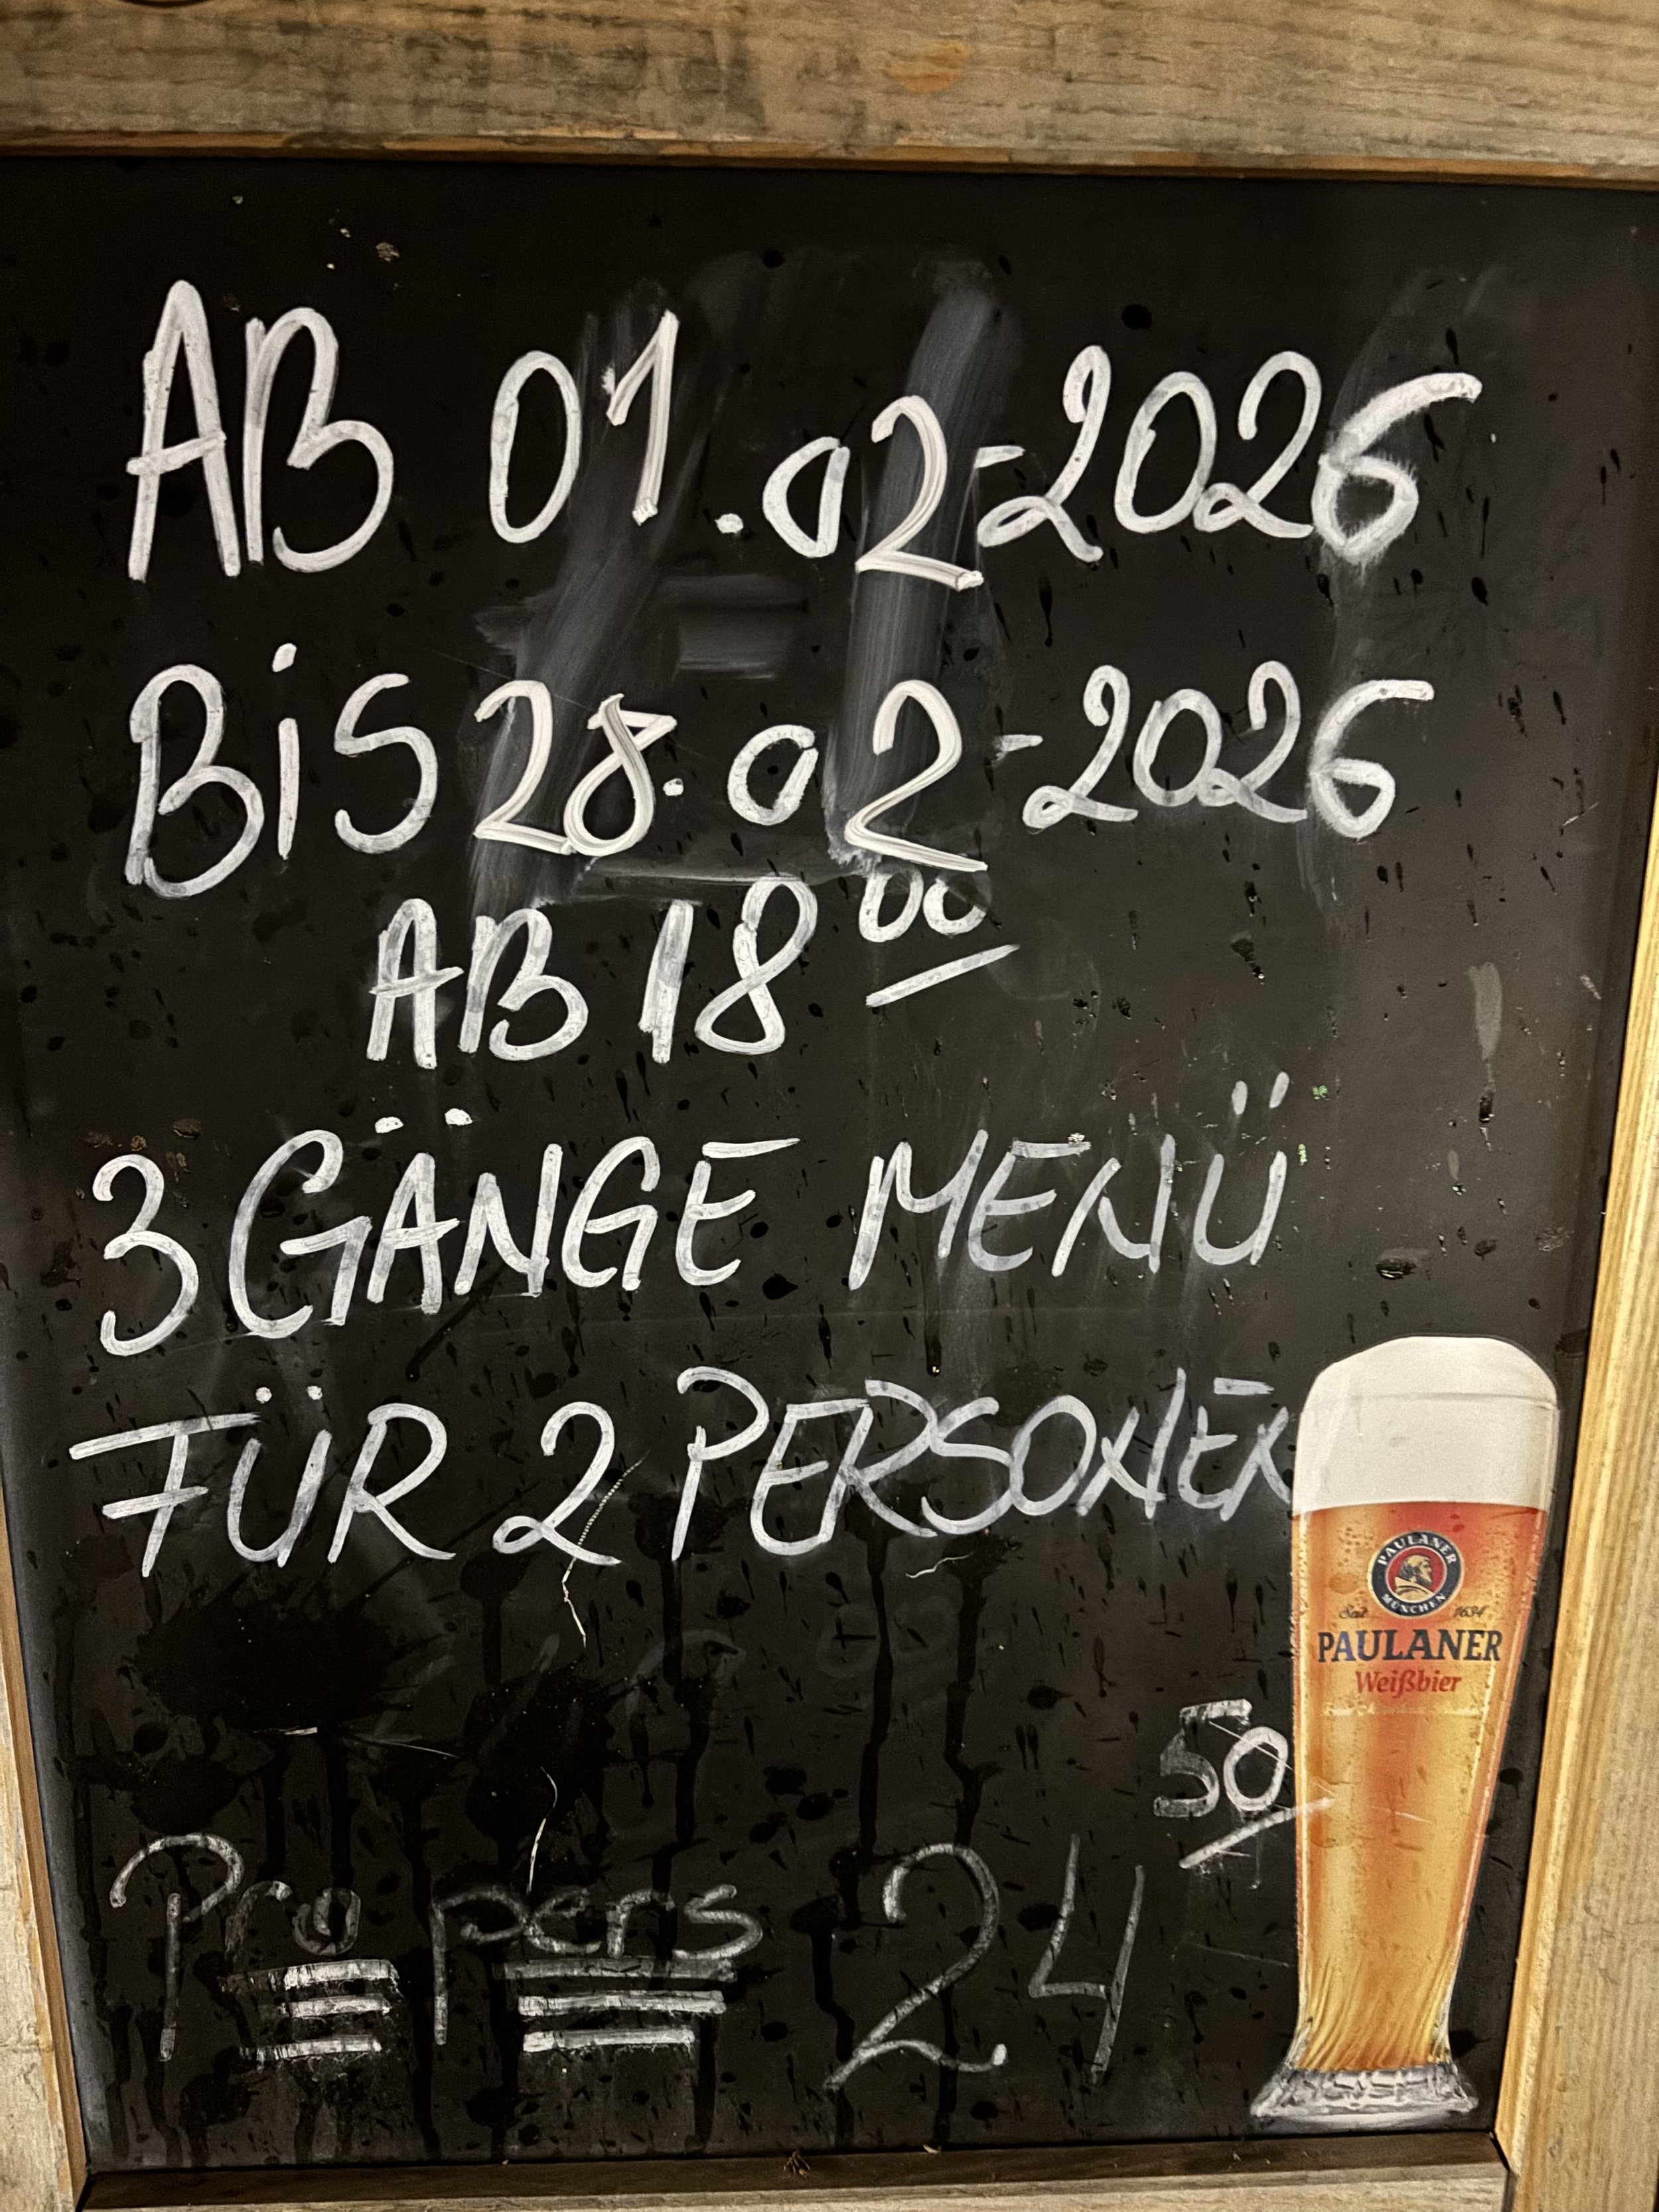 AB 01.02-2026
BiS 28.02-2026
AB 18 00
3 GÄNGE MENÜ
FÜR 2 PERSONEN
PAULANER
MÜNCHEN
Seit 1634
PAULANER
Weißbier
Pro pers 24 50